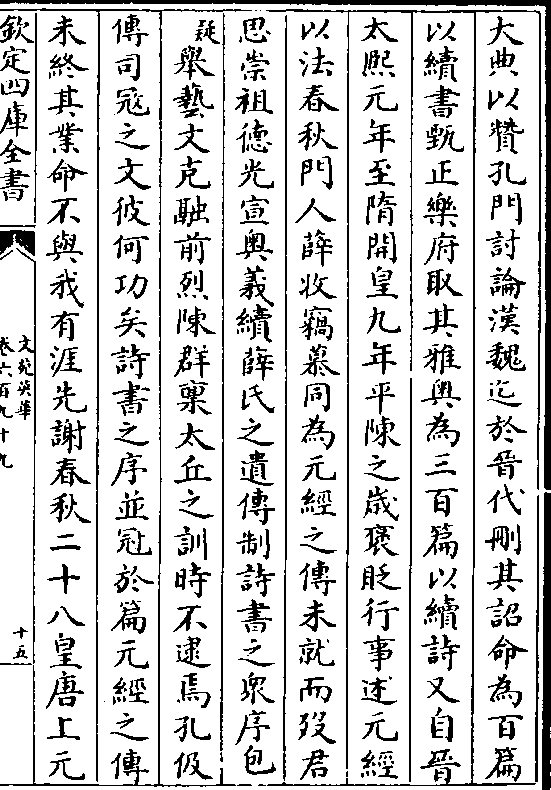 大典以賛孔門討論漢魏迄於晉代刪其詔命為百篇
以續書甄正樂府取其雅奥為三百篇以續詩又自晉
太熙元年至隋開皇九年平陳之嵗褒貶行事述元經
以法春秋門人薛收竊慕同為元經之傳未就而殁君
思崇祖德光宣奥義續薛氏之遺傳制詩書之衆序包
疑舉藝文克融前烈陳群禀太丘之訓時不逮焉孔伋
傳司冦之文彼何功矣詩書之序並冠於篇元經之傳
未終其業命不與我有涯先謝春秋二十八皇唐上元
欽定四庫全書
文苑英華
卷六百九十九
十五